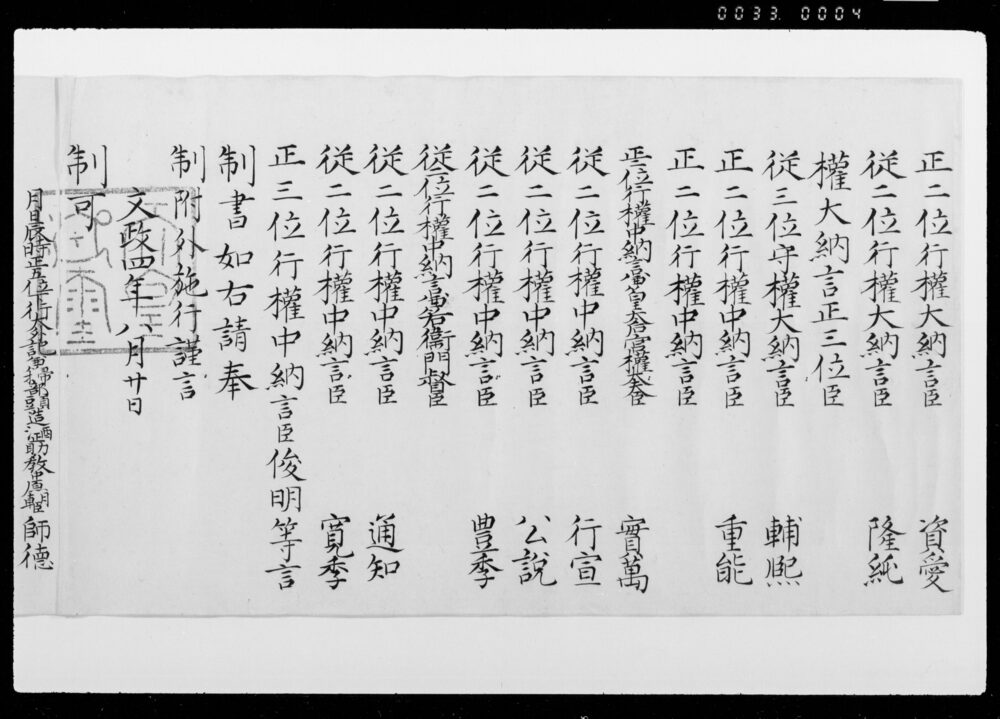 0033. 0004
正二位行權大納言臣 資愛
從二位行權大納言臣 隆純
權大納言正三位臣
從三位守權大納言臣 輔熙
正二位行權中納言臣 重能
正二位行權中納言臣
正二位行權中納言兼皇太后宮權大夫臣 實萬
從二位行權中納言臣 行宣
從二位行權中納言臣 公說
從二位行權中納言臣 豊季
從二位行權中納言兼右衞門督臣
從二位行權中納言臣 通知
從二位行權中納言臣 寬季
正三位行權中納言臣俊明等言
制書如右請奉
制附外施行謹言
文政四年八月廿日
制可
月日辰時正五位下行大外記兼掃部頭造酒正 師德